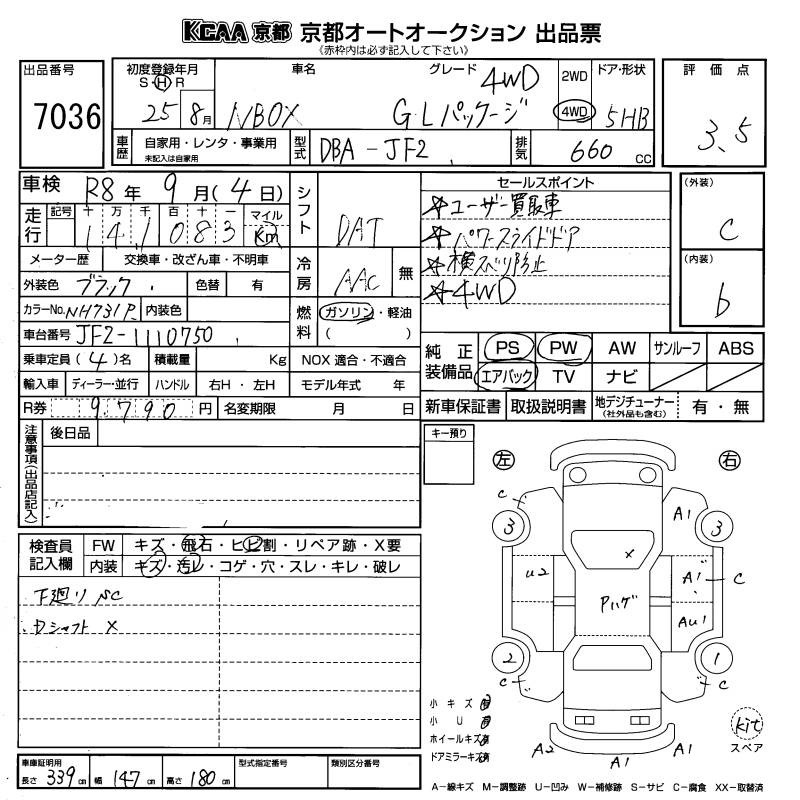 KCAA 京都 京都オートオークション 出品票
《赤枠内は必ず記入して下さい》
出品番号
7036
初度登録年月
S・H・R
25年 8月
車名
NBOX
グレード
4WD
G・Lパッケージ
2WD
4WD
ドア・形状
5HB
評価点
3.5
車歴
自家用・レンタ・事業用
未記入は自家用
型式
DBA-JF2
排気
660 CC
車検
R8年 9月(4日)
走行
記号 十 万 千 百 十 一 マイル
141083 Km
メーター歴 交換車・改ざん車・不明車
外装色 ブラック 色替 有
カラーNo. NH731P 内装色
車台番号 JF2-1110750
乗車定員(4)名 積載量 Kg NOX 適合・不適合
輸入車 ディーラー・並行 ハンドル 右H・左H モデル年式 年
R券 9,790円 名変期限 月 日
シフト
DAT
冷房
AAC 無
燃料
ガソリン・軽油
( )
セールスポイント
☆ユーザー買取車
☆パワースライドドア
☆横スベリ防止
☆4WD
(外装)
C
(内装)
b
純正装備品
PS PW AW サンルーフ ABS
エアバック TV ナビ
新車保証書 取扱説明書 地デジチューナー(社外品も含む) 有・無
注意事項(出品店記入)
後日品
キー預り
検査員記入欄
FW キズ・飛石・ヒビ割・リペア跡・X要
内装 キズ・汚レ・コゲ・穴・スレ・キレ・破レ
下廻り SC
Dシャフト X
左 右
C
3 A1 3
X
U2 A1 C
Pハゲ
AU1
2 1
C C
小キズ 有
小U 有
ホイールキズ 有
ドアミラーキズ 有
A2 A1 A1
kit
スペア
車庫証明用
長さ 339cm 幅 147cm 高さ 180cm
型式指定番号 類別区分番号
A-線キズ M-調整跡 U-凹み W-補修跡 S-サビ C-腐食 XX-取替済